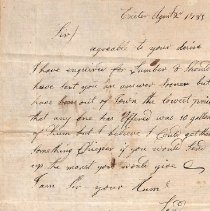 Exeter April 2d 1788
Sir/
agreeable to your desire
I have enquired for Lumber & should
have sent you an answer sooner but
have been out of Town the lowest price
that any one has offered was 10 gallons
of Rum but I believe I could get them
something Cheaper if you would send
up the most you would give
I am Sir your Hum